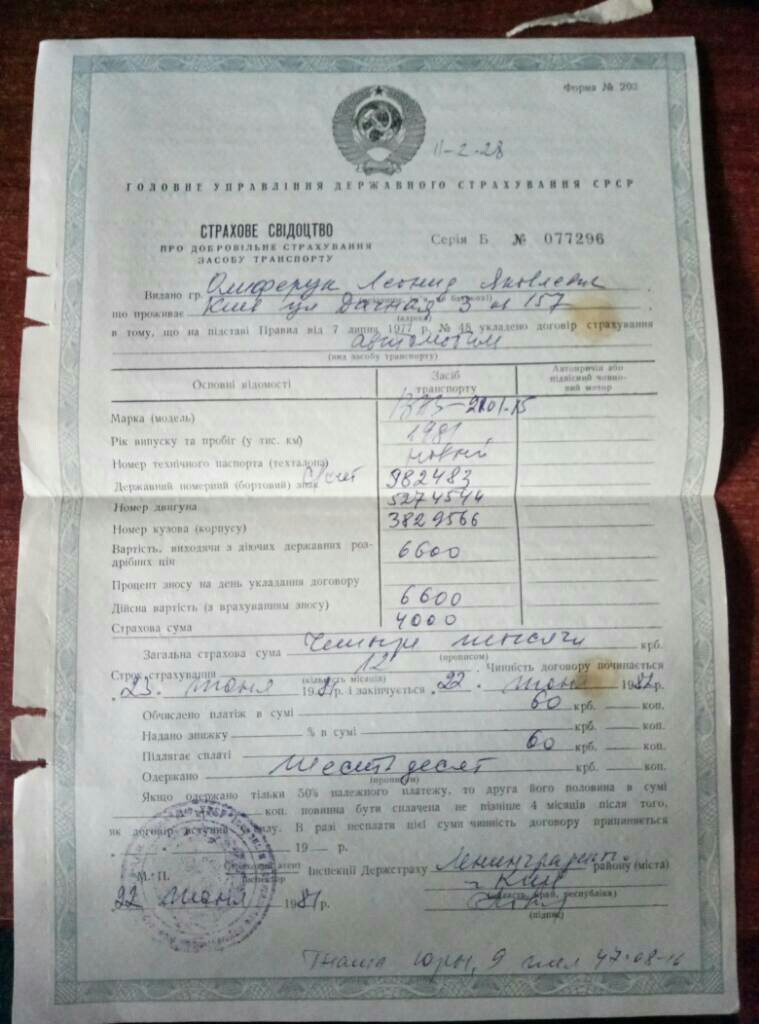 Форма № 203
11-2-28
ГОЛОВНЕ УПРАВЛІННЯ ДЕРЖАВНОГО СТРАХУВАННЯ СРСР
СТРАХОВЕ СВІДОЦТВО
ПРО ДОБРОВІЛЬНЕ СТРАХУВАННЯ
ЗАСОБУ ТРАНСПОРТУ
Серія Б № 077296
Видано гр. Леонид Яковлевич
що проживає Киев ул Дачная 3 кв 157
(адреса)
в тому, що на підставі Правил від 7 липня 1977 р. № 48 укладено договір страхування
автомобиля
(вид засобу транспорту)
Основні відомості Засіб транспорту Автопричіп або підвісний човновий мотор
Марка (модель) ВАЗ-2101-15
Рік випуску та пробіг (у тис. км) 1981,
Номер технічного паспорта (техталона) новый
Державний номерний (бортовий) знак 982483
Номер двигуна 5274544
Номер кузова (корпусу) 3829566
Вартість, виходячи з діючих державних роз-
дрібних цін 6600
Процент зносу на день укладання договору
Дійсна вартість (з врахуванням зносу) 6600
Страхова сума 4000
Загальна страхова сума Четыре тысячи крб.
(прописом)
Строк страхування 12 Чинність договору починається
(кількість місяців)
„23. июня 1981р. і закінчується „22. июня 1982р.
Обчислено платіж в сумі 60 крб. коп.
Надано знижку % в сумі крб. коп.
Підлягає сплаті 60 крб. коп.
Одержано Шестьдесят крб. коп.
(прописом)
Якщо одержано тільки 50% належного платежу, то друга його половина в сумі
коп. повинна бути сплачена не пізніше 4 місяців після того,
як договір вступив в силу. В разі несплати цієї суми чинність договору припиняється
19 р.
М. П. Страховий агент
інспектор Інспекції Держстраху Ленинградск. району (міста)
г Киев
(область, край, республіка)
22 июня 1981р.
(підпис)
Юры, 9 47-08-16